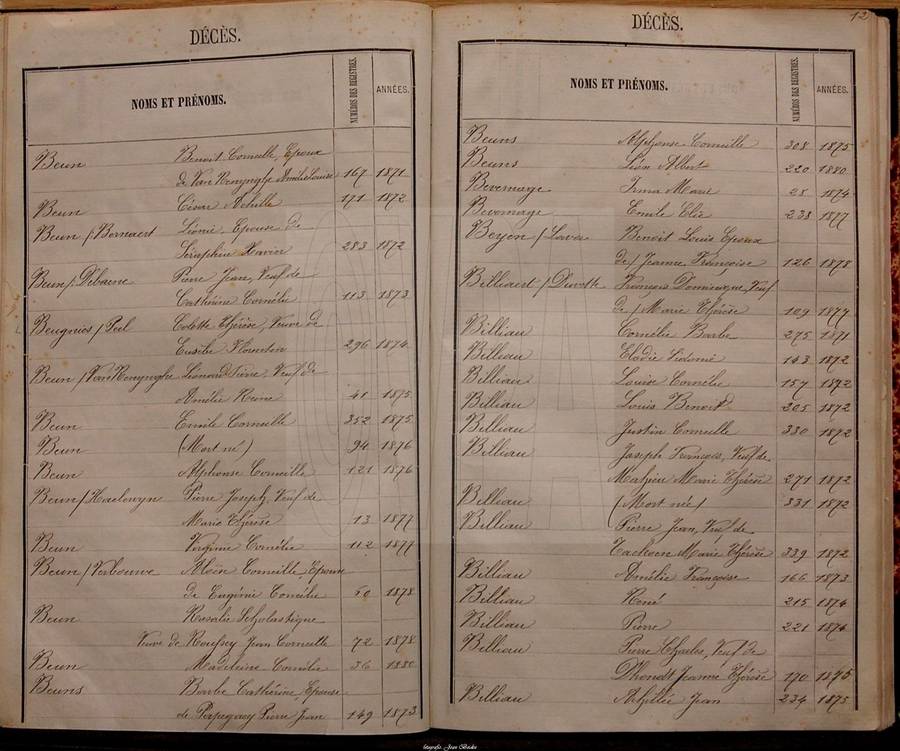 DÉCÈS.
NOMS ET PRÉNOMS. NUMÉROS DES REGISTRES. ANNÉES.
Beun Benoit Corneille, Epoux
de Van Renynghe Amélie Louise 167 1871
Beun César Achille 171 1872
Beun / Bornaert Léonie, Epouse de
Seraphin Xavier 283 1872
Beun / Debaene Pierre Jean, Veuf de
Catherine Cornélie 113 1873
Beugnies / Peel Colette Thérèse, Veuve de
Eusèbe Florentin 296 1874
Beun / Van Renynghe Léonard Pierre, Veuf de
Amélie Reine 41 1875
Beun Emile Corneille 352 1875
Beun (Mort né) 94 1876
Beun Alphonse Corneille 121 1876
Beun / Haelewyn Pierre Joseph, Veuf de
Marie Thérèse 13 1877
Beun Virginie Cornélie 112 1877
Beun / Verbouwe Aloïse Corneille, Epoux
de Eugénie Cornélie 60 1878
Beun Rosalie Scholastique
Veuve de Roussey Jean Corneille 72 1878
Beun Madeleine Cornélie 36 1880
Beuns Barbe Cathérine, Epouse
de Pierre Jean 149 1873
DÉCÈS. 12
NOMS ET PRÉNOMS. NUMÉROS DES REGISTRES. ANNÉES.
Beuns Alphonse Corneille 308 1875
Beuns Léon Albert 220 1880
Bevernage Irma Marie 28 1874
Bevernage Emile Elie 238 1877
Beyen / Benoit Louis Epoux
de / Jeanne Françoise 126 1878
Billiaert / François Dominique, Veuf
de / Marie Thérèse 109 1877
Billiau Cornélie Barbe 275 1871
Billiau Elodie Sidonie 143 1872
Billiau Louise Cornélie 157 1872
Billiau Louis Benoit 205 1872
Billiau Justin Corneille 330 1872
Billiau Joseph François, Veuf de
Mahieu Marie Thérèse 271 1872
Billiau (Mort né) 331 1872
Billiau Pierre Jean, Veuf de
Marie Thérèse 339 1872
Billiau Amélie Françoise 166 1873
Billiau René 215 1874
Billiau Pierre 221 1874
Billiau Pierre Charles, Veuf de
Dhondt Jeanne Thérèse 190 1875
Billiau Achillée Jean 234 1875